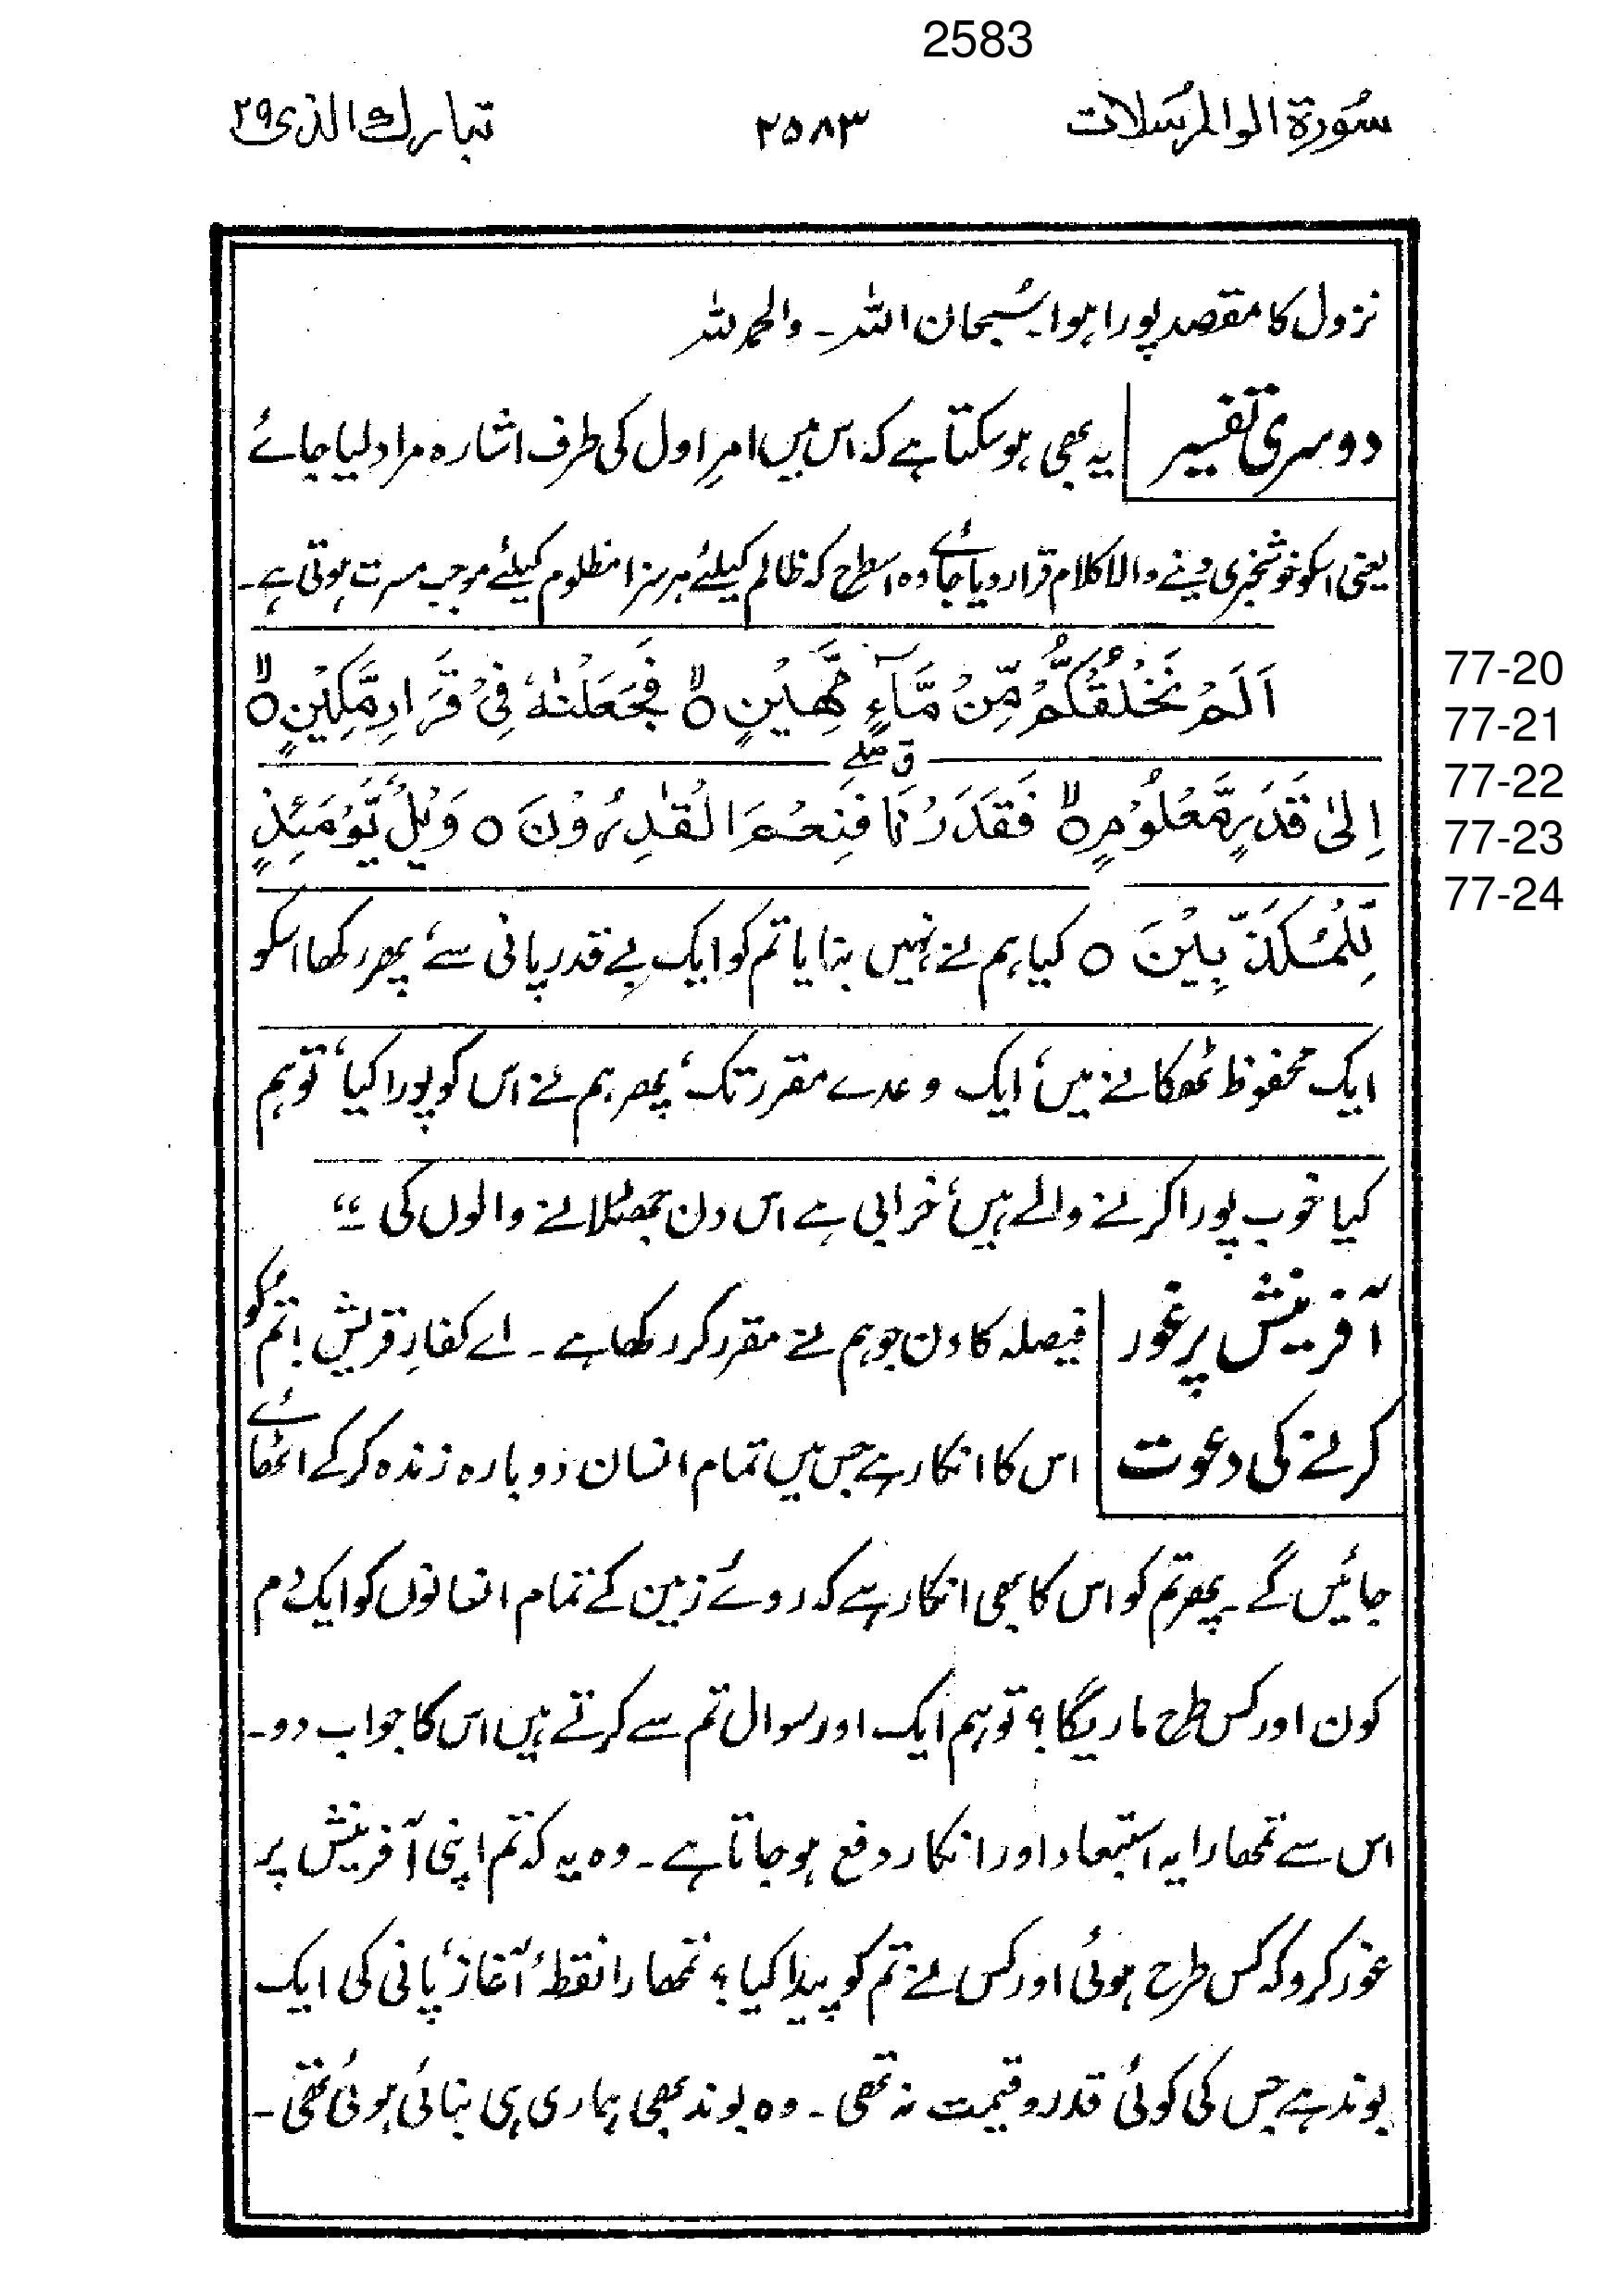 2583
سُورة الوالمرسَلات ۲۵۸۳ تبارك الذى ۲۹
نزول کا مقصد پورا ہوا۔ سُبحان اللہ۔ والحمد للہ
دوسری تفسیر یہ بھی ہو سکتا ہے کہ اس میں امرِ اول کی طرف اشارہ مراد لیا جائے
یعنی اسکو خوشخبری دینے والا کلام قرار دیا جائے وہ اسطرح کہ ظالم کیلئے ہر سزا مظلوم کیلئے موجب مسرت ہوتی ہے۔
اَلَمْ نَخْلُقْكُّمْ مِّنْ مَّآءٍ مَّهِيْنٍ ۝ فَجَعَلْنٰهُ فِيْ قَرَارٍ مَّكِيْنٍ ۝ 77-20
77-21
اِلٰى قَدَرٍ مَّعْلُوْمٍ ۝ فَقَدَرْنَا فَنِعْمَ الْقٰدِرُوْنَ ۝ وَيْلٌ يَّوْمَئِذٍ 77-22
77-23
لِّلْمُكَذِّبِيْنَ ۝ کیا ہم نے نہیں بنایا تم کو ایک بے قدر پانی سے، پھر رکھا اسکو 77-24
ایک محفوظ ٹھکانے میں، ایک وعدے مقرر تک، پھر ہم نے اس کو پورا کیا، تو ہم
کیا خوب پورا کرنے والے ہیں، خرابی ہے اس دن جھٹلانے والوں کی ؛؛
آفرینش پر غور فیصلہ کا دن جو ہم نے مقرر کر رکھا ہے۔ اے کفارِ قریش! تم کو
کرنے کی دعوت اس کا انکار ہے جس میں تمام انسان دوبارہ زندہ کر کے اٹھائے
جائیں گے۔ پھر تم کو اس کا بھی انکار ہے کہ روئے زمین کے تمام انسانوں کو ایک دم
کون اور کس طرح ماریگا؟ تو ہم ایک اور سوال تم سے کرتے ہیں اس کا جواب دو۔
اس سے تمھارا یہ استبعاد اور انکار دفع ہو جاتا ہے۔ وہ یہ کہ تم اپنی آفرینش پر
غور کرو کہ کس طرح ہوئی اور کس نے تم کو پیدا کیا؟ تمھارا نقطۂ آغاز، پانی کی ایک
بوند ہے جس کی کوئی قدر و قیمت نہ تھی۔ وہ بوند بھی ہماری ہی بنائی ہوئی تھی۔